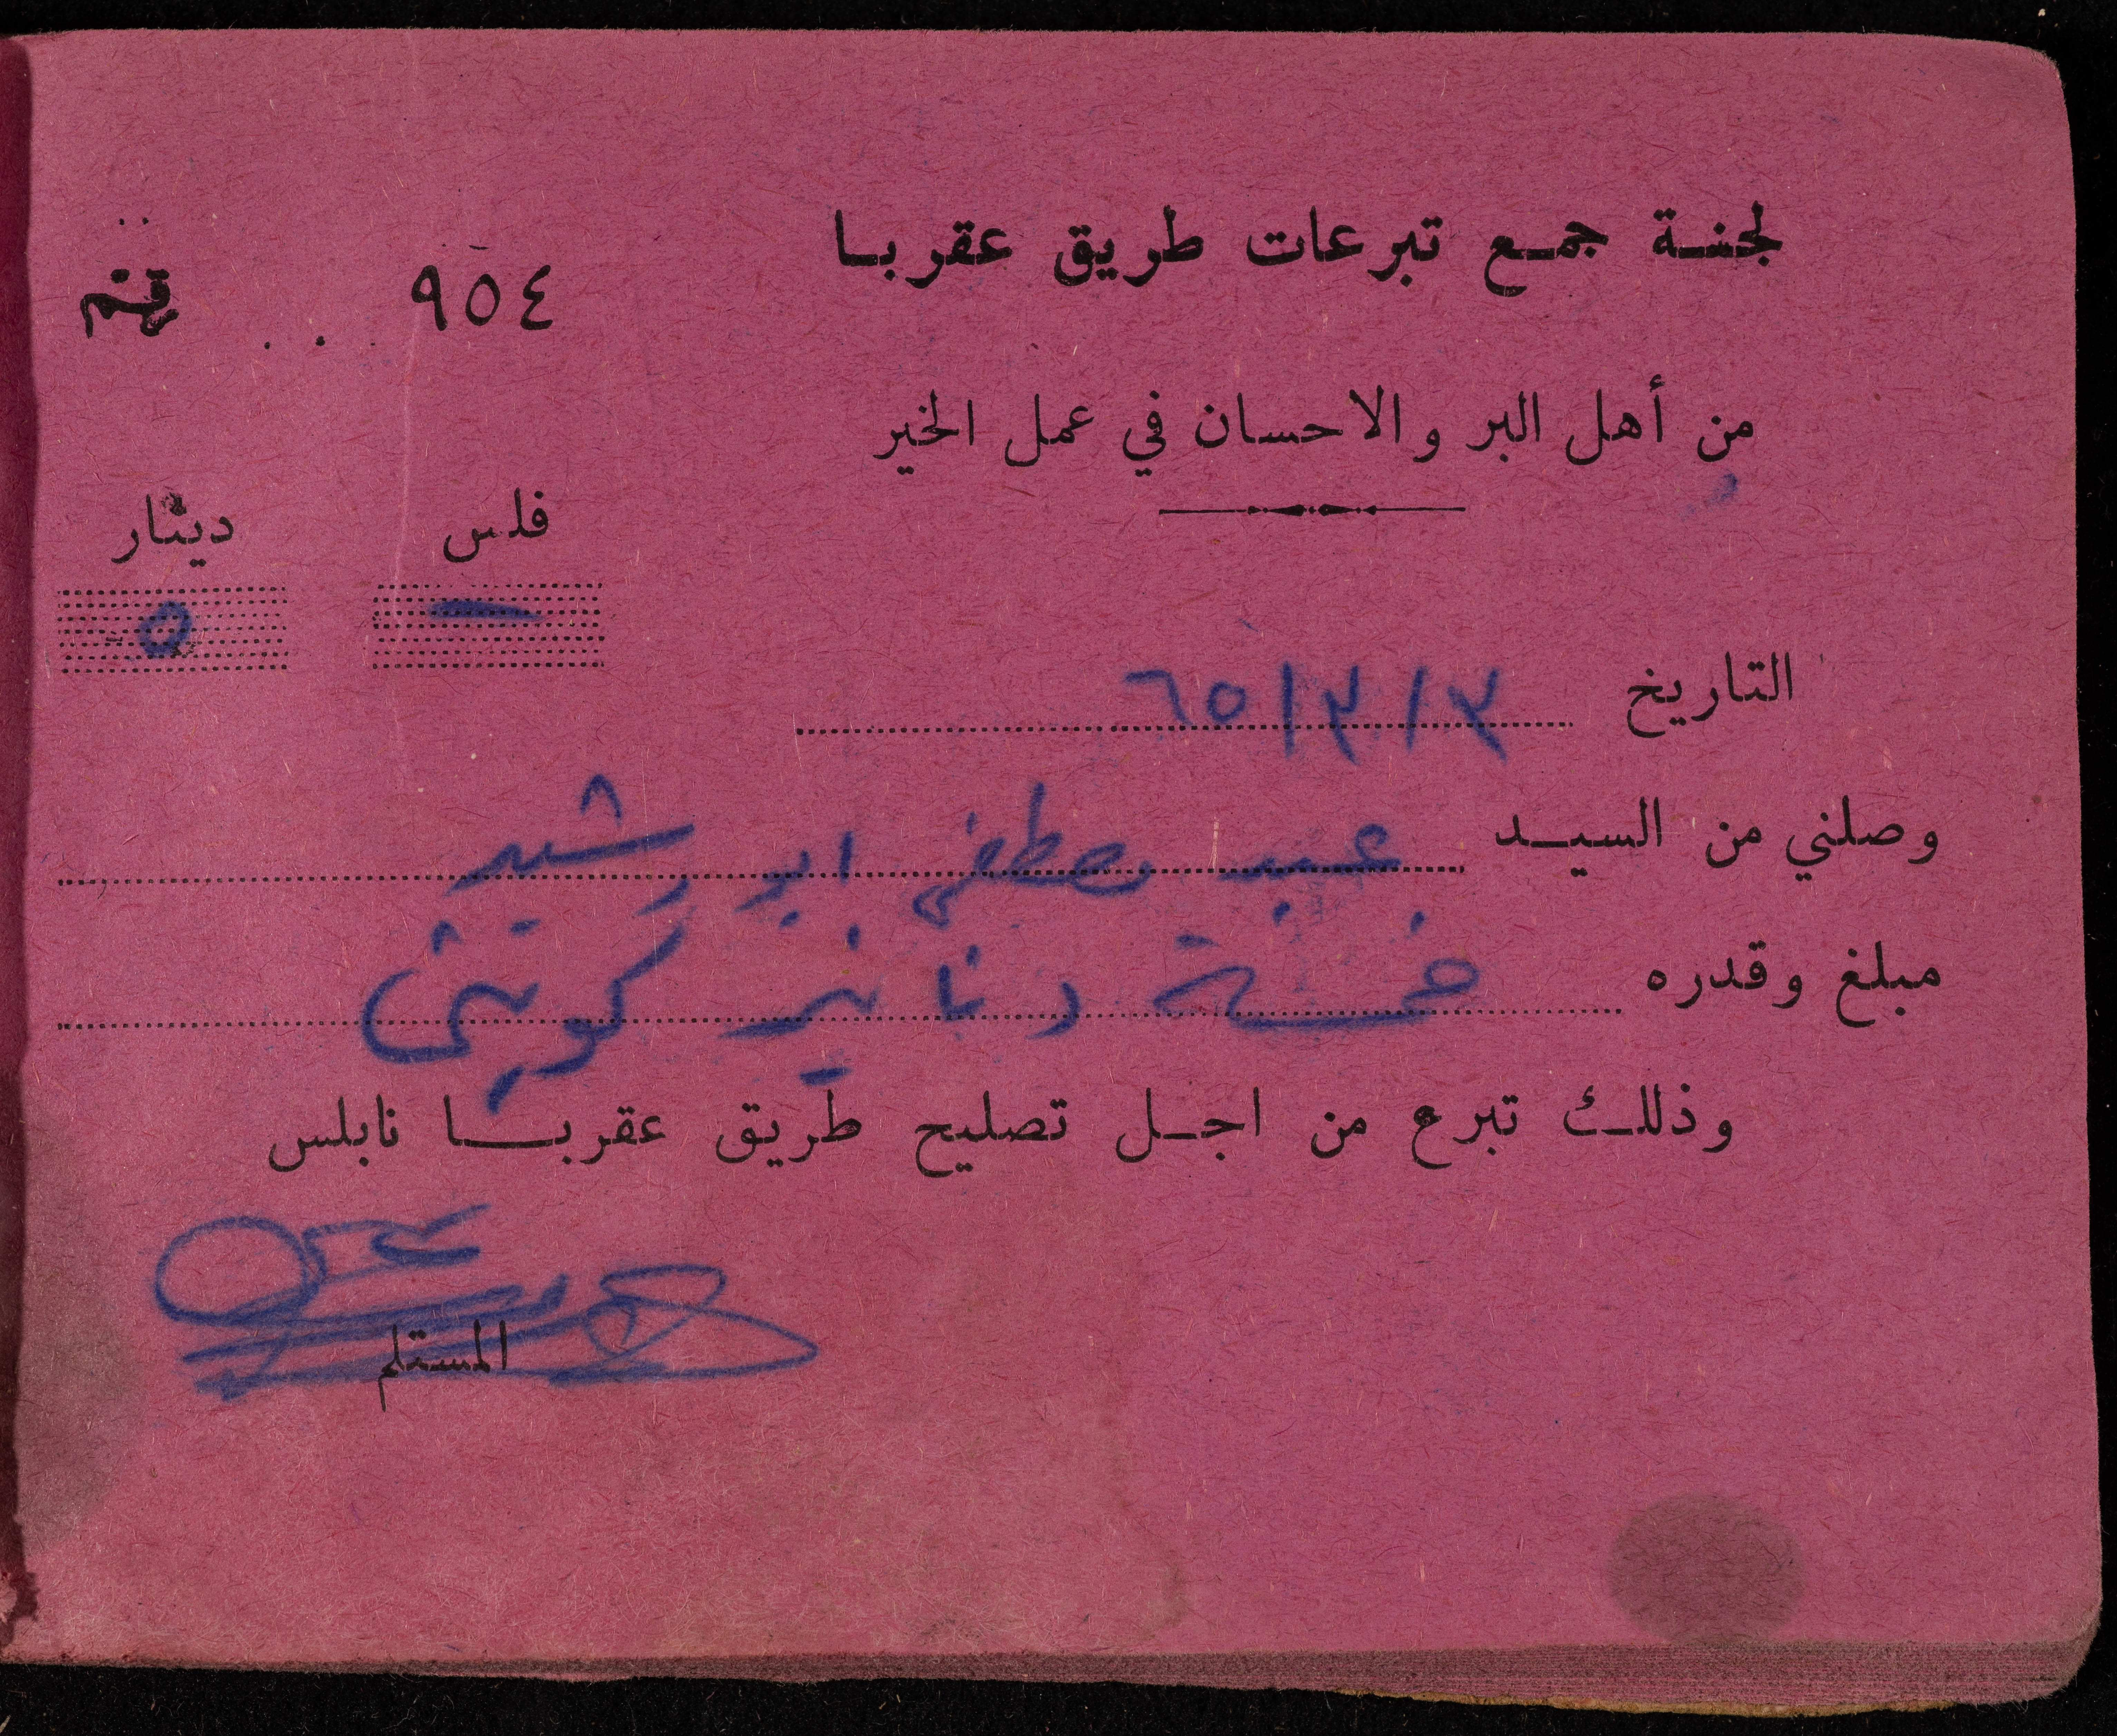 لجنة جمع تبرعات طريق عقربا
٩٥٤
من أهل البر والاحسان في عمل الخير
فلس دينار
— ٥
التاريخ ٣/٣/٦٥
وصلني من السيد عبد مصطفى ابو رشيد
مبلغ وقدره خمسة دنانير كويتي
وذلك تبرع من اجل تصليح طريق عقربا نابلس
المستلم